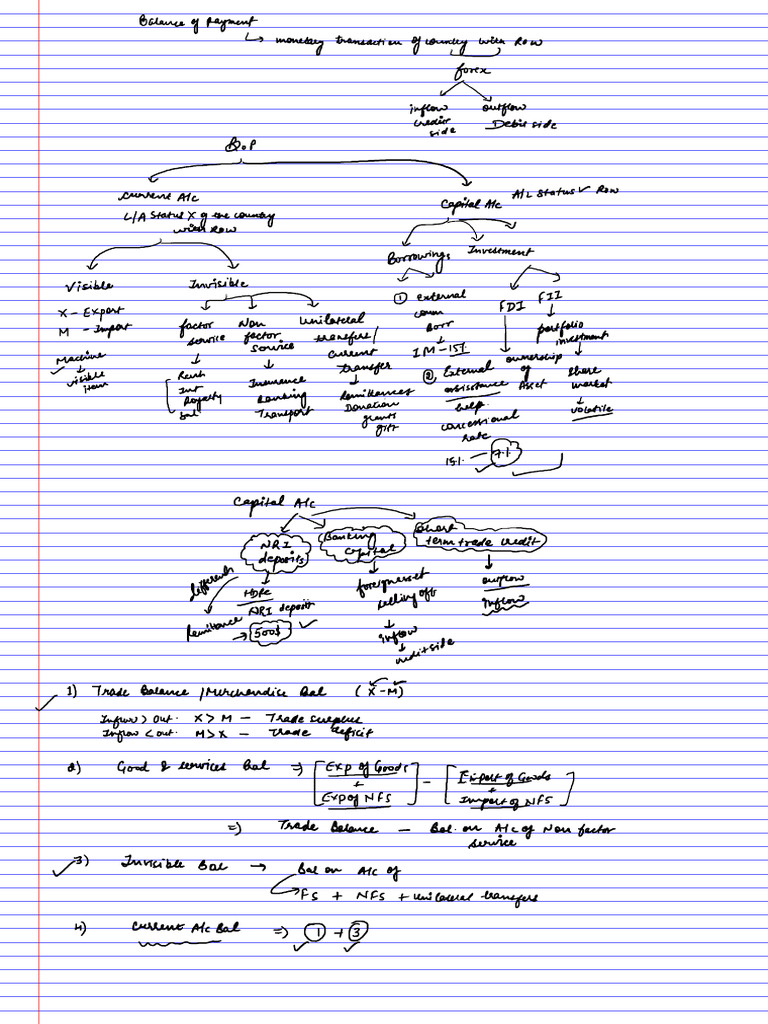 Balance of Payment
↳ monetary transaction of country with Row
forex
inflow outflow
credit side Debit side
B.O.P
Current A/c
L/A Status X of the country
with Row
Capital A/c A/L Status ✓ Row
Borrowings Investment
Visible Invisible
X - Export
M - Import
Machine
↓
visible
item
factor
service
↓
Rent
Int
Royalty
Sal
Non
factor
service
↓
Insurance
Banking
Transport
Unilateral
transfers/
current
transfer
↓
Remittances
Donation
grants
gift
① External
comm
Borr
IM - 15%
② External
assistance
help
concessional
rate
15% — 7%
FDI
ownership
of
Asset
FII
portfolio
investment
share
market
↓
volatile
Capital A/c
NRI
deposits
Banking
capital
Short
term trade credit
different
Remittance
HDFC
NRI deposit
→ 500$ ✓
foreign asset
selling off
↓
inflow
↓
credit side
outflow
inflow
1) Trade Balance / Merchandise Bal (X-M)
Inflow > Out. X > M - Trade surplus
Inflow < out. M > X - Trade deficit
2) Good & services Bal ⇒ [Exp of Goods + Exp of NFS] - [Export of Goods + Import of NFS]
⇒) Trade Balance - Bal. on A/c of Non factor
service
3) Invisible Bal → Bal on A/c of
FS + NFS + unilateral transfers
4) Current A/c Bal ⇒ ① + ③